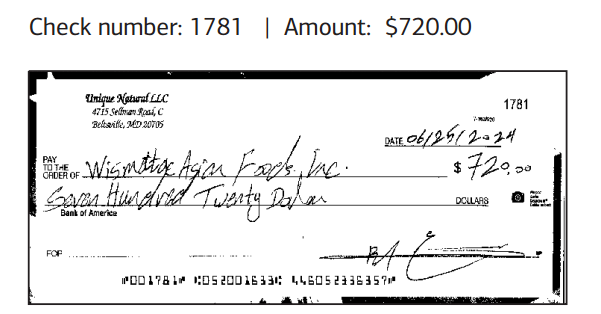 Check number: 1781 | Amount: $720.00
Unique Natural LLC
4715 Sellman Road, C
Beltsville, MD 20705
1781
DATE 06/25/2024
PAY TO THE ORDER OF Wismettac Asian Foods, Inc. $ 720.00
Seven Hundred Twenty Dollar DOLLARS
Bank of America
FOR
⑈001781⑈ ⑆052001633⑆ 446052336357⑈